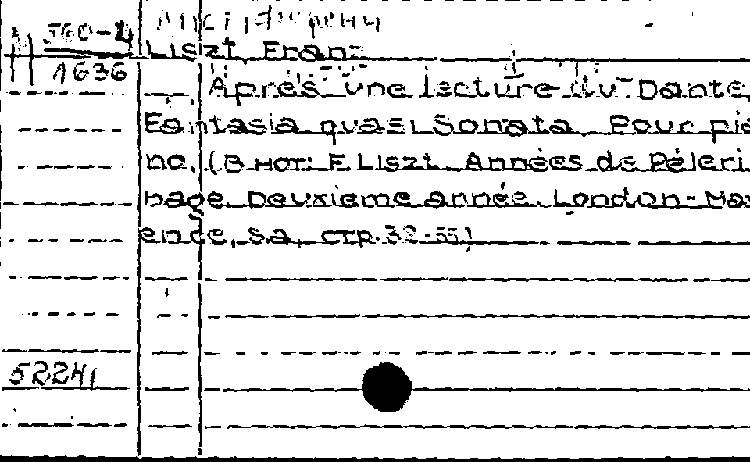 Лист Ференц
J60-2
Liszt, Franz
1636
Après une lecture du Dante,
Fantasia quasi Sonata. Pour pia
no. (В нот: F. Liszt. Années de Péleri
nage. Deuxieme année. London-Ma
ence, s.a., стр. 32-55)
52241